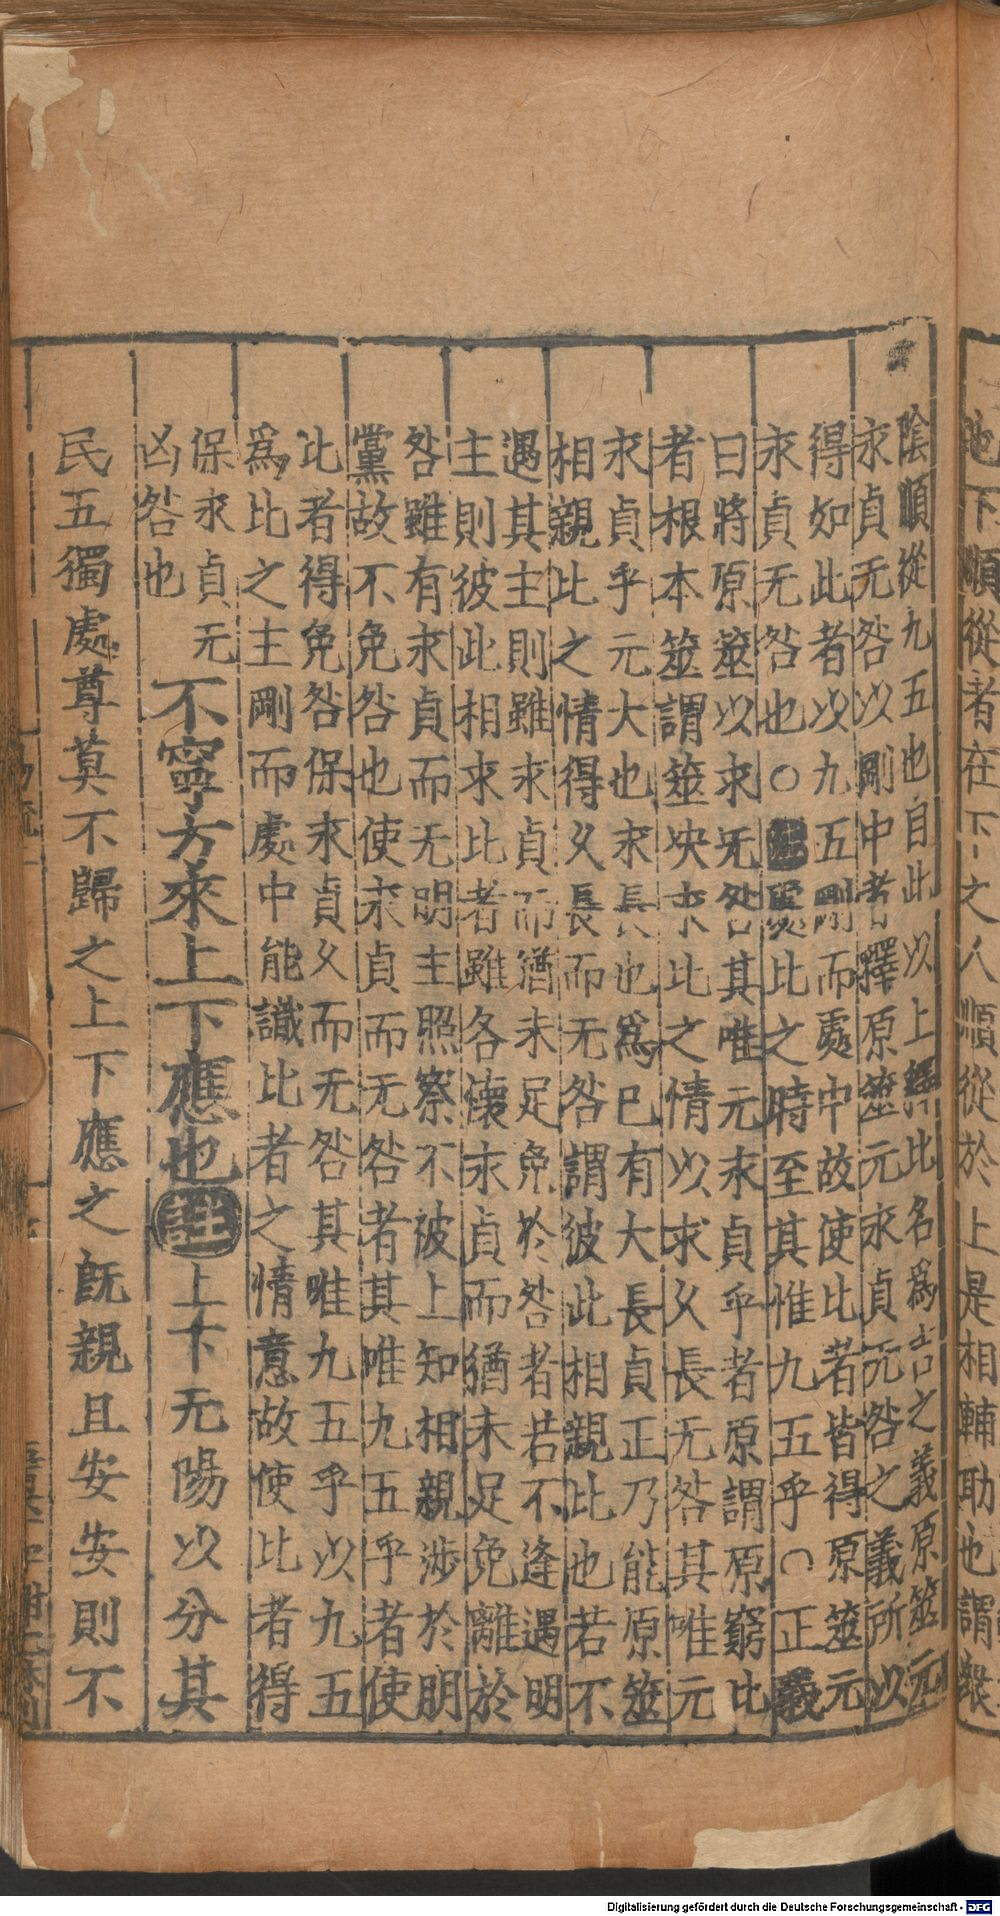 地下順從者在下之人順從於上是相輔助也謂衆
陰順從九五也自此以上釋比名爲吉之義原筮元
永貞无咎以剛中者釋原筮元永貞无咎之義所以
得如此者以九五剛而處中故使比者皆得原筮元
永貞无咎也○註處比之時至其惟九五乎○正義
曰將原筮以求无咎其唯元永貞乎者原謂原窮比
者根本筮謂筮决求比之情以求久長无咎其唯元
永貞乎元大也永長也爲已有大長貞正乃能原筮
相親比之情得久長而无咎謂彼此相親比也若不
遇其主則雖永貞而猶未足免於咎者若不逢遇明
主則彼此相求比者雖各懷永貞而猶未足免離於
咎雖有永貞而无明主照察不被上知相親涉於朋
黨故不免咎也使永貞而无咎者其唯九五乎者使
比者得免咎保永貞久而无咎其唯九五乎以九五
爲比之主剛而處中能識比者之情意故使比者得
保永貞无
凶咎也
不寧方來上下應也註上下无陽以分其
民五獨處尊莫不歸之上下應之旣親且安安則不
Digitalisierung gefördert durch die Deutsche Forschungsgemeinschaft - DFG